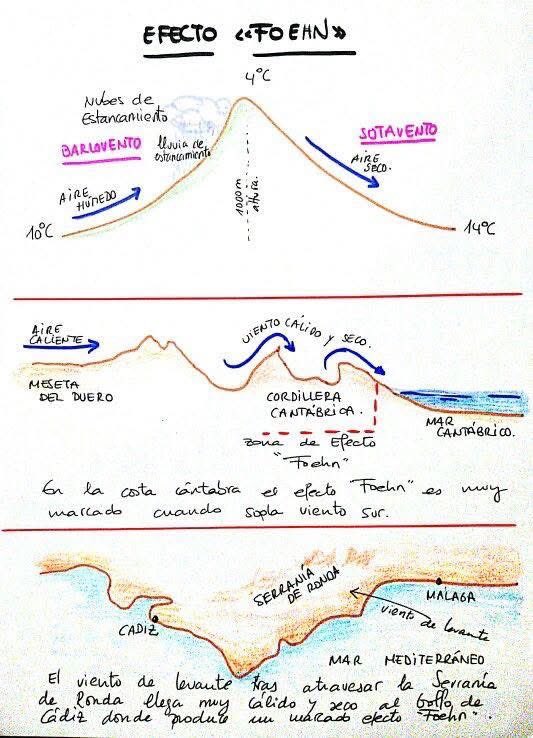 EFECTO «FOEHN»
4ºC
Nubes de
Estancamiento
BARLOVENTO
lluvia de
estancamiento
SOTAVENTO
AIRE
HÚMEDO
AIRE
SECO.
1000m
altura.
10ºC
14ºC
AIRE
CALIENTE
VIENTO CÁLIDO Y SECO.
MESETA
DEL DUERO
CORDILLERA
CANTÁBRICA.
MAR
CANTÁBRICO.
zona de Efecto
"Foehn"
En la costa cántabra el efecto "Foehn" es muy
marcado cuando sopla viento sur.
SERRANÍA
DE RONDA
MALAGA
CADIZ
viento de levante
MAR MEDITERRÁNEO
El viento de levante tras atravesar la Serranía
de Ronda llega muy cálido y seco al Golfo de
Cádiz donde produce un marcado efecto "Foehn".